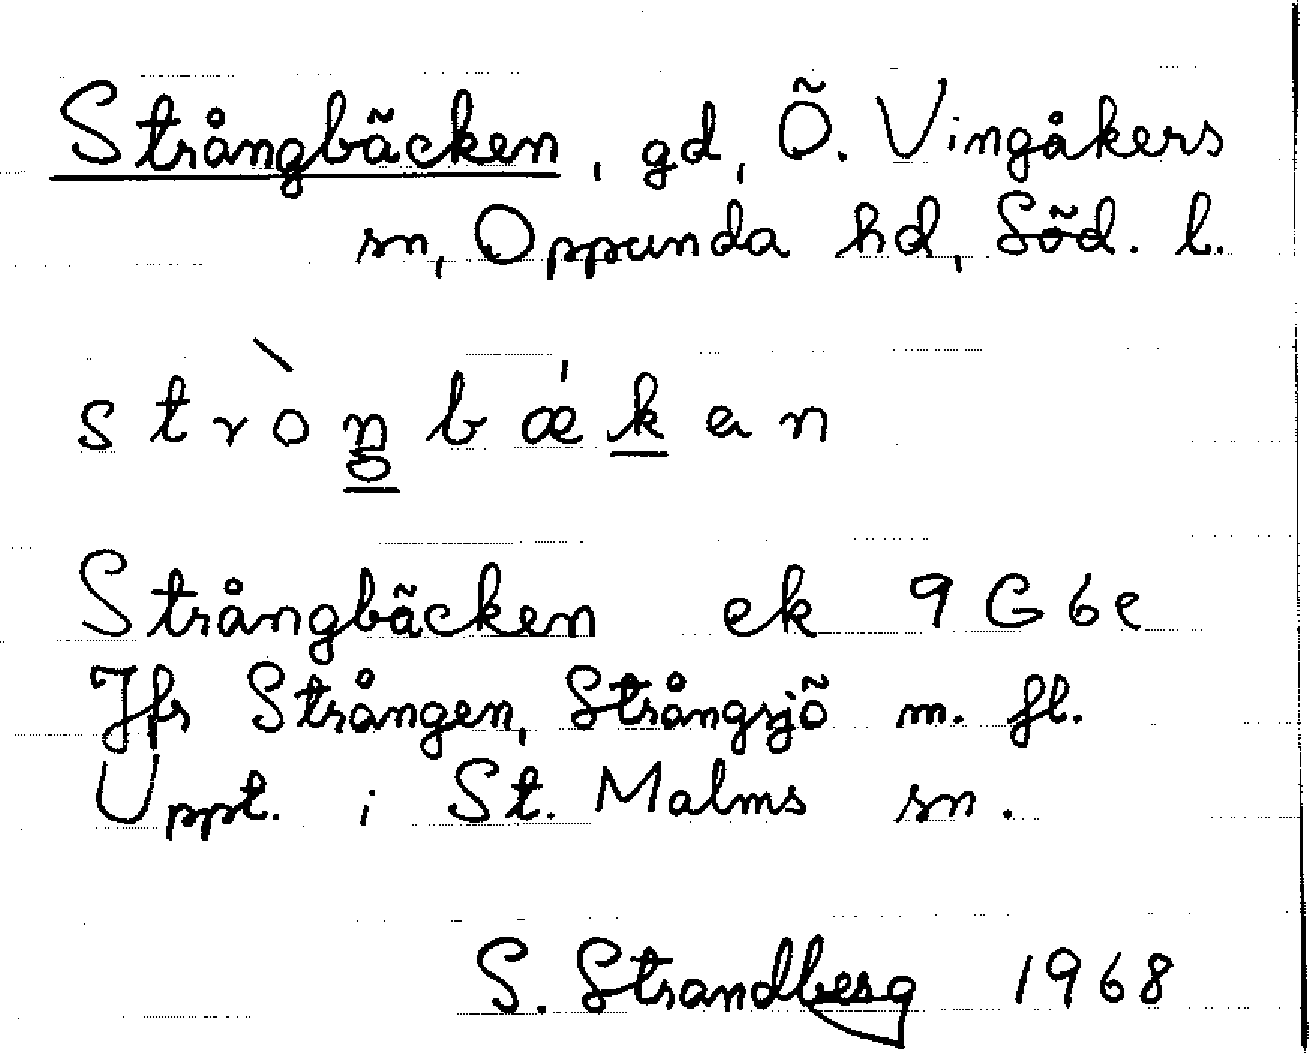 Strångbäcken, gd, Ö. Vingåkers
sn, Oppunda hd, Söd. l.
stròŋbǽkən
Strångbäcken ek 9G6e
Jfr Strången, Strångsjö m. fl.
Uppt. i St. Malms sn.
S. Strandberg 1968